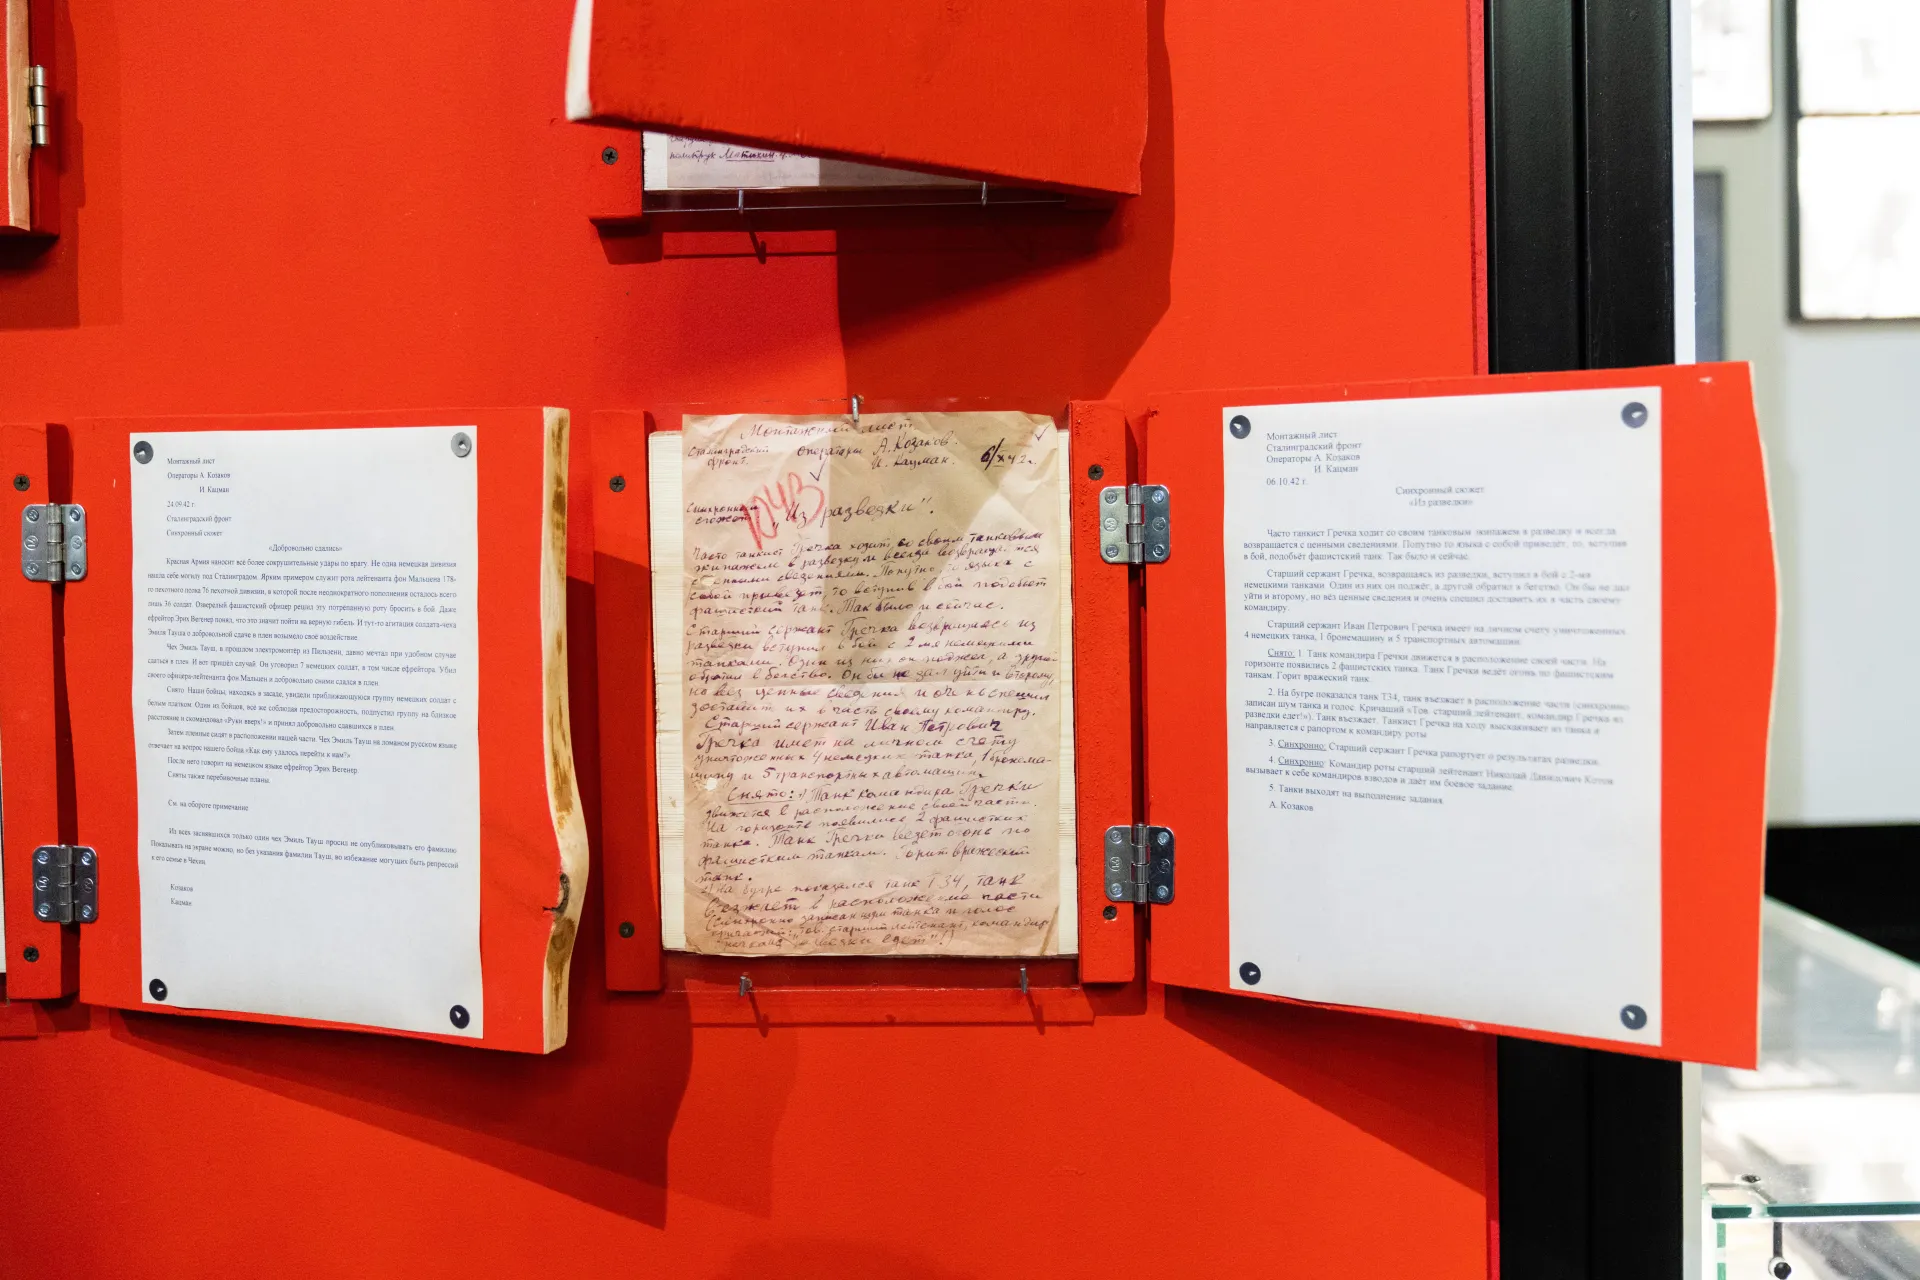 политрук Матикин
Монтажный лист
Операторы А. Козаков
И. Кацман
24.09.42 г.
Сталинградский фронт
Синхронный сюжет
«Добровольно сдались»
Красная Армия наносит все более сокрушительные удары по врагу. Не одна немецкая дивизия
нашла себе могилу под Сталинградом. Ярким примером служит рота лейтенанта фон Мальцена 178-
го пехотного полка 76 пехотной дивизии, в которой после неоднократного пополнения осталось всего
лишь 36 солдат. Озверелый фашистский офицер решил эту потрепанную роту бросить в бой. Даже
ефрейтор Эрих Вегенер понял, что это значит пойти на верную гибель. И тут-то агитация солдата-чеха
Эмиля Тауша о добровольной сдаче в плен возымело своё воздействие
Чех Эмиль Тауш, в прошлом электромонтер из Пильзени, давно мечтал при удобном случае
сдаться в плен. И вот пришёл случай. Он уговорил 7 немецких солдат, в том числе ефрейтора. Убил
своего офицера-лейтенанта фон Мальцен и добровольно сними сдался в плен
Снято. Наши бойцы, находясь в засаде, увидели приближающуюся группу немецких солдат с
белым платком. Один из бойцов, все же соблюдая предосторожность, подпустил группу на близкое
расстояние и скомандовал «Руки вверх!» и принял добровольно сдавшихся в плен
Затем пленные сидят в расположении нашей части. Чех Эмиль Тауш на ломаном русском языке
отвечает на вопрос нашего бойца «Как ему удалось перейти к нам?»
После него говорит на немецком языке ефрейтор Эрих Вегенер.
Сняты также перебивочные планы.
См. на обороте примечание
Из всех заснявшихся только один чех Эмиль Тауш просил не опубликовывать его фамилию
Показывать на экране можно, но без указания фамилии Тауш, во избежание могущих быть репрессий
к его семье в Чехии.
Козаков
Кацман
Монтажный лист
Сталинградский Операторы А. Козаков.
фронт. И. Кацман. 6/X 42 г.
1043
Синхронный
сюжет „Из разведки".
Часто танкист Гречка ходит со своим танковым
экипажем в разведку и всегда возвращается
с ценными сведениями. Попутно, то языка с
собой приведёт, то вступив в бой подобьет
фашистский танк. Так было и сейчас.
Старший сержант Гречка возвращаясь из
разведки вступил в бой с 2-мя немецкими
танками. Один из них он поджег, а другой
обратил в бегство. Он бы не дал уйти и второму,
но вез ценные сведения и очень спешил
доставить их в часть своему командиру.
Старший сержант Иван Петрович
Гречка имеет на личном счету
уничтоженных 4 немецких танка, 1 бронема-
шину и 5 транспортных автомашин.
Снято: 1) Танк командира Гречки
движется в расположение своей части.
На горизонте появились 2 фашистских
танка. Танк Гречки ведет огонь по
фашистским танкам. Горит вражеский
танк.
2) На бугре показался танк Т34, танк
въезжает в расположение части
(синхронно записан шум танка и голос
кричащий: „Тов. старший лейтенант, командир
Гречка из разведки едет"!)
Монтажный лист
Сталинградский фронт
Операторы А. Козаков
И. Кацман
06.10.42 г.
Синхронный сюжет
«Из разведки»
Часто танкист Гречка ходит со своим танковым экипажем в разведку и всегда
возвращается с ценными сведениями. Попутно то языка с собой приведёт, то, вступив
в бой, подобьёт фашистский танк. Так было и сейчас.
Старший сержант Гречка, возвращаясь из разведки, вступил в бой с 2-мя
немецкими танками. Один из них он поджёг, а другой обратил в бегство. Он бы не дал
уйти и второму, но вёз ценные сведения и очень спешил доставить их в часть своему
командиру.
Старший сержант Иван Петрович Гречка имеет на личном счету уничтоженных
4 немецких танка, 1 бронемашину и 5 транспортных автомашин.
Снято: 1. Танк командира Гречки движется в расположение своей части. На
горизонте появились 2 фашистских танка. Танк Гречки ведёт огонь по фашистским
танкам. Горит вражеский танк.
2. На бугре показался танк Т34, танк въезжает в расположение части (синхронно
записан шум танка и голос. Кричащий «Тов. старший лейтенант, командир Гречка из
разведки едет!»). Танк въезжает. Танкист Гречка на ходу выскакивает из танка и
направляется с рапортом к командиру роты
3. Синхронно: Старший сержант Гречка рапортует о результатах разведки.
4. Синхронно: Командир роты старший лейтенант Николай Давидович Козлов
вызывает к себе командиров взводов и даёт им боевое задание.
5. Танки выходят на выполнение задания
А. Козаков